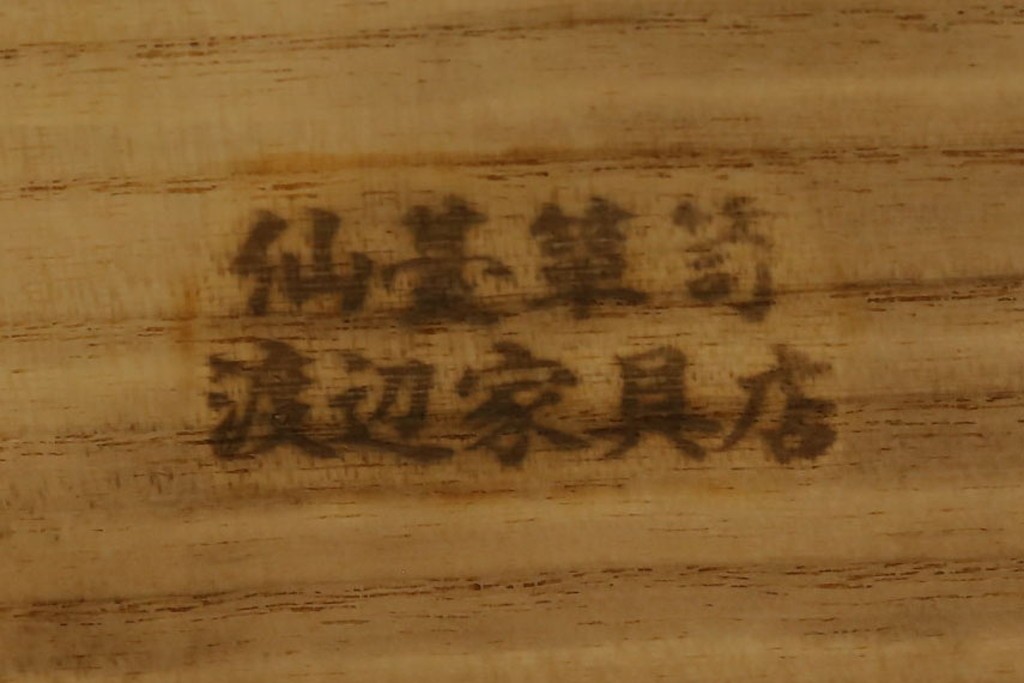 仙臺箪笥
渡辺家具店